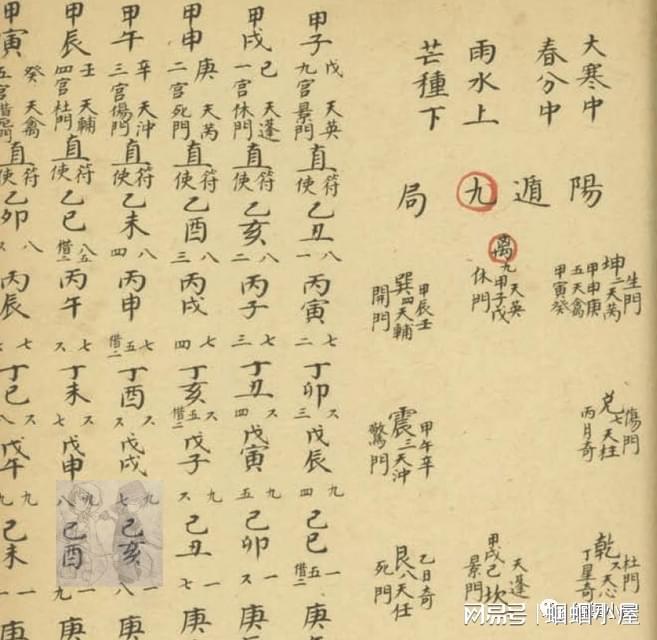 大寒中
春分中
雨水上
芒種下
陽遁九局
生門
坤二天芮
甲申庚
五天禽
甲寅癸
離九天英
甲子戊
休門
甲辰壬
巽四天輔
開門
傷門
兌七天柱
丙月奇
甲午辛
震三天沖
驚門
杜門
乾六天心
丁星奇
天蓬
坎
甲戌己
景門
乙日奇
艮八天任
死門
甲子
戊 天英
九宮景門
直符
使
乙丑
八 一
丙寅
七 二
丁卯
六 三
戊辰
九 四
己巳
一 五借二
庚
甲戌
己 天蓬
一宮休門
直符
使
乙亥
八 二
丙子
七 三
丁丑
六 四
戊寅
九 五
己卯
一 六
庚
甲申
庚 天芮
二宮死門
直符
使
乙酉
八 三
丙戌
七 四
丁亥
六 五借二
戊子
九 六
己丑
一 七
庚
甲午
辛 天沖
三宮傷門
直符
使
乙未
八 四
丙申
七 五借二
丁酉
六 六
戊戌
九 七
己亥
一 八
庚
甲辰
壬 天輔
四宮杜門
直符
使
乙巳
八 五借二
丙午
七 六
丁未
六 七
戊申
九 八
己酉
一 九
庚
甲寅
癸 天禽
五宮
直符
使
乙卯
八 六
丙辰
七 七
丁巳
六 八
戊午
九 九
己未
一 一
庚
网易号
蝈蝈小屋